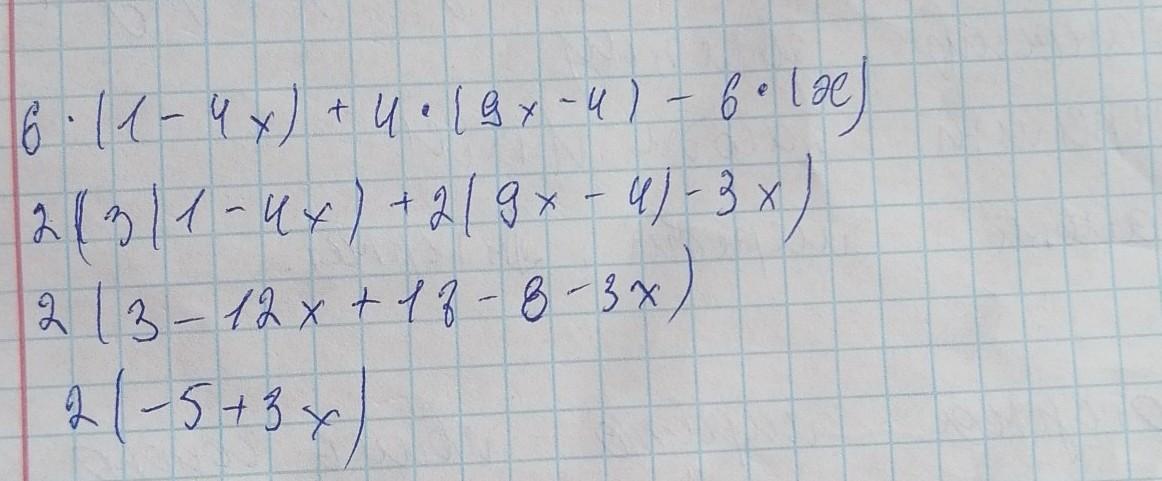 6 · (1 - 4x) + 4 · (9x - 4) - 6 · (x)
2(3(1 - 4x) + 2(9x - 4) - 3x)
2(3 - 12x + 18 - 8 - 3x)
2(-5 + 3x)